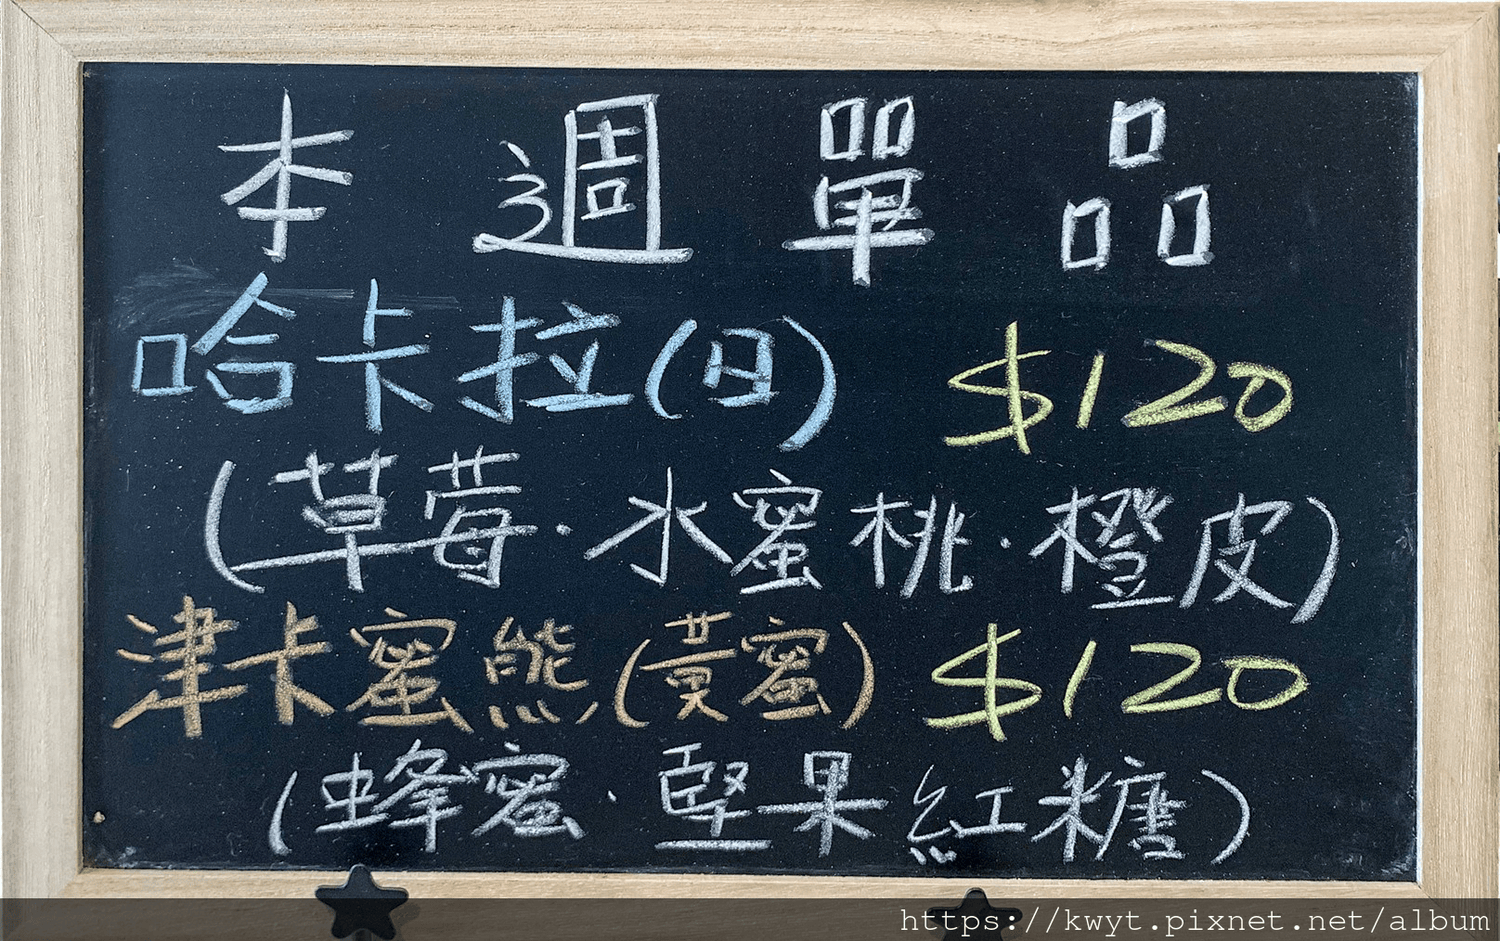 本週單品
哈卡拉(日) $120
(草莓·水蜜桃·橙皮)
津卡蜜熊,(黃蜜) $120
(蜂蜜·堅果紅糖)
https://kwyt.pixnet.net/album